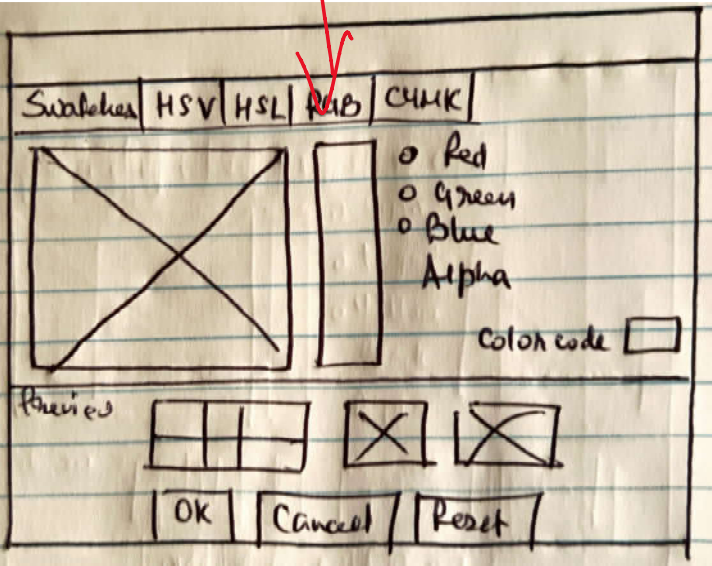 Swatches HSV HSL RGB CYMK
Red
Green
Blue
Alpha
Color code
Preview
OK Cancel Reset